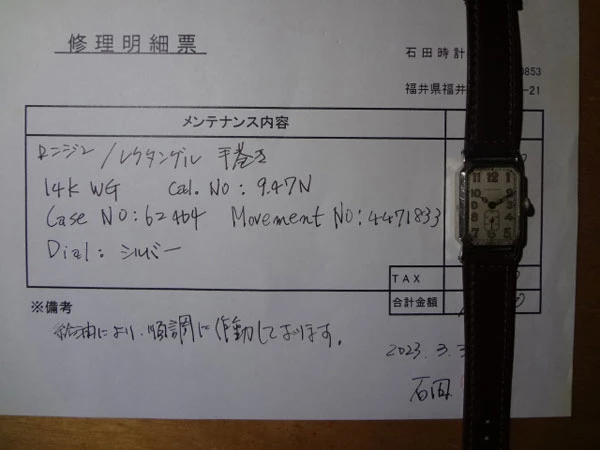 修理明細票
石田時計
0853
福井県福井
-21
メンテナンス内容
ロンジン/レクタンギル 手巻き
14K WG Cal. NO: 9.47N
Case NO: 62464 Movement NO: 4471833
Dial: シルバー
TAX
合計金額
※備考
給油により、順調に作動しております。
2023.3.3
石田